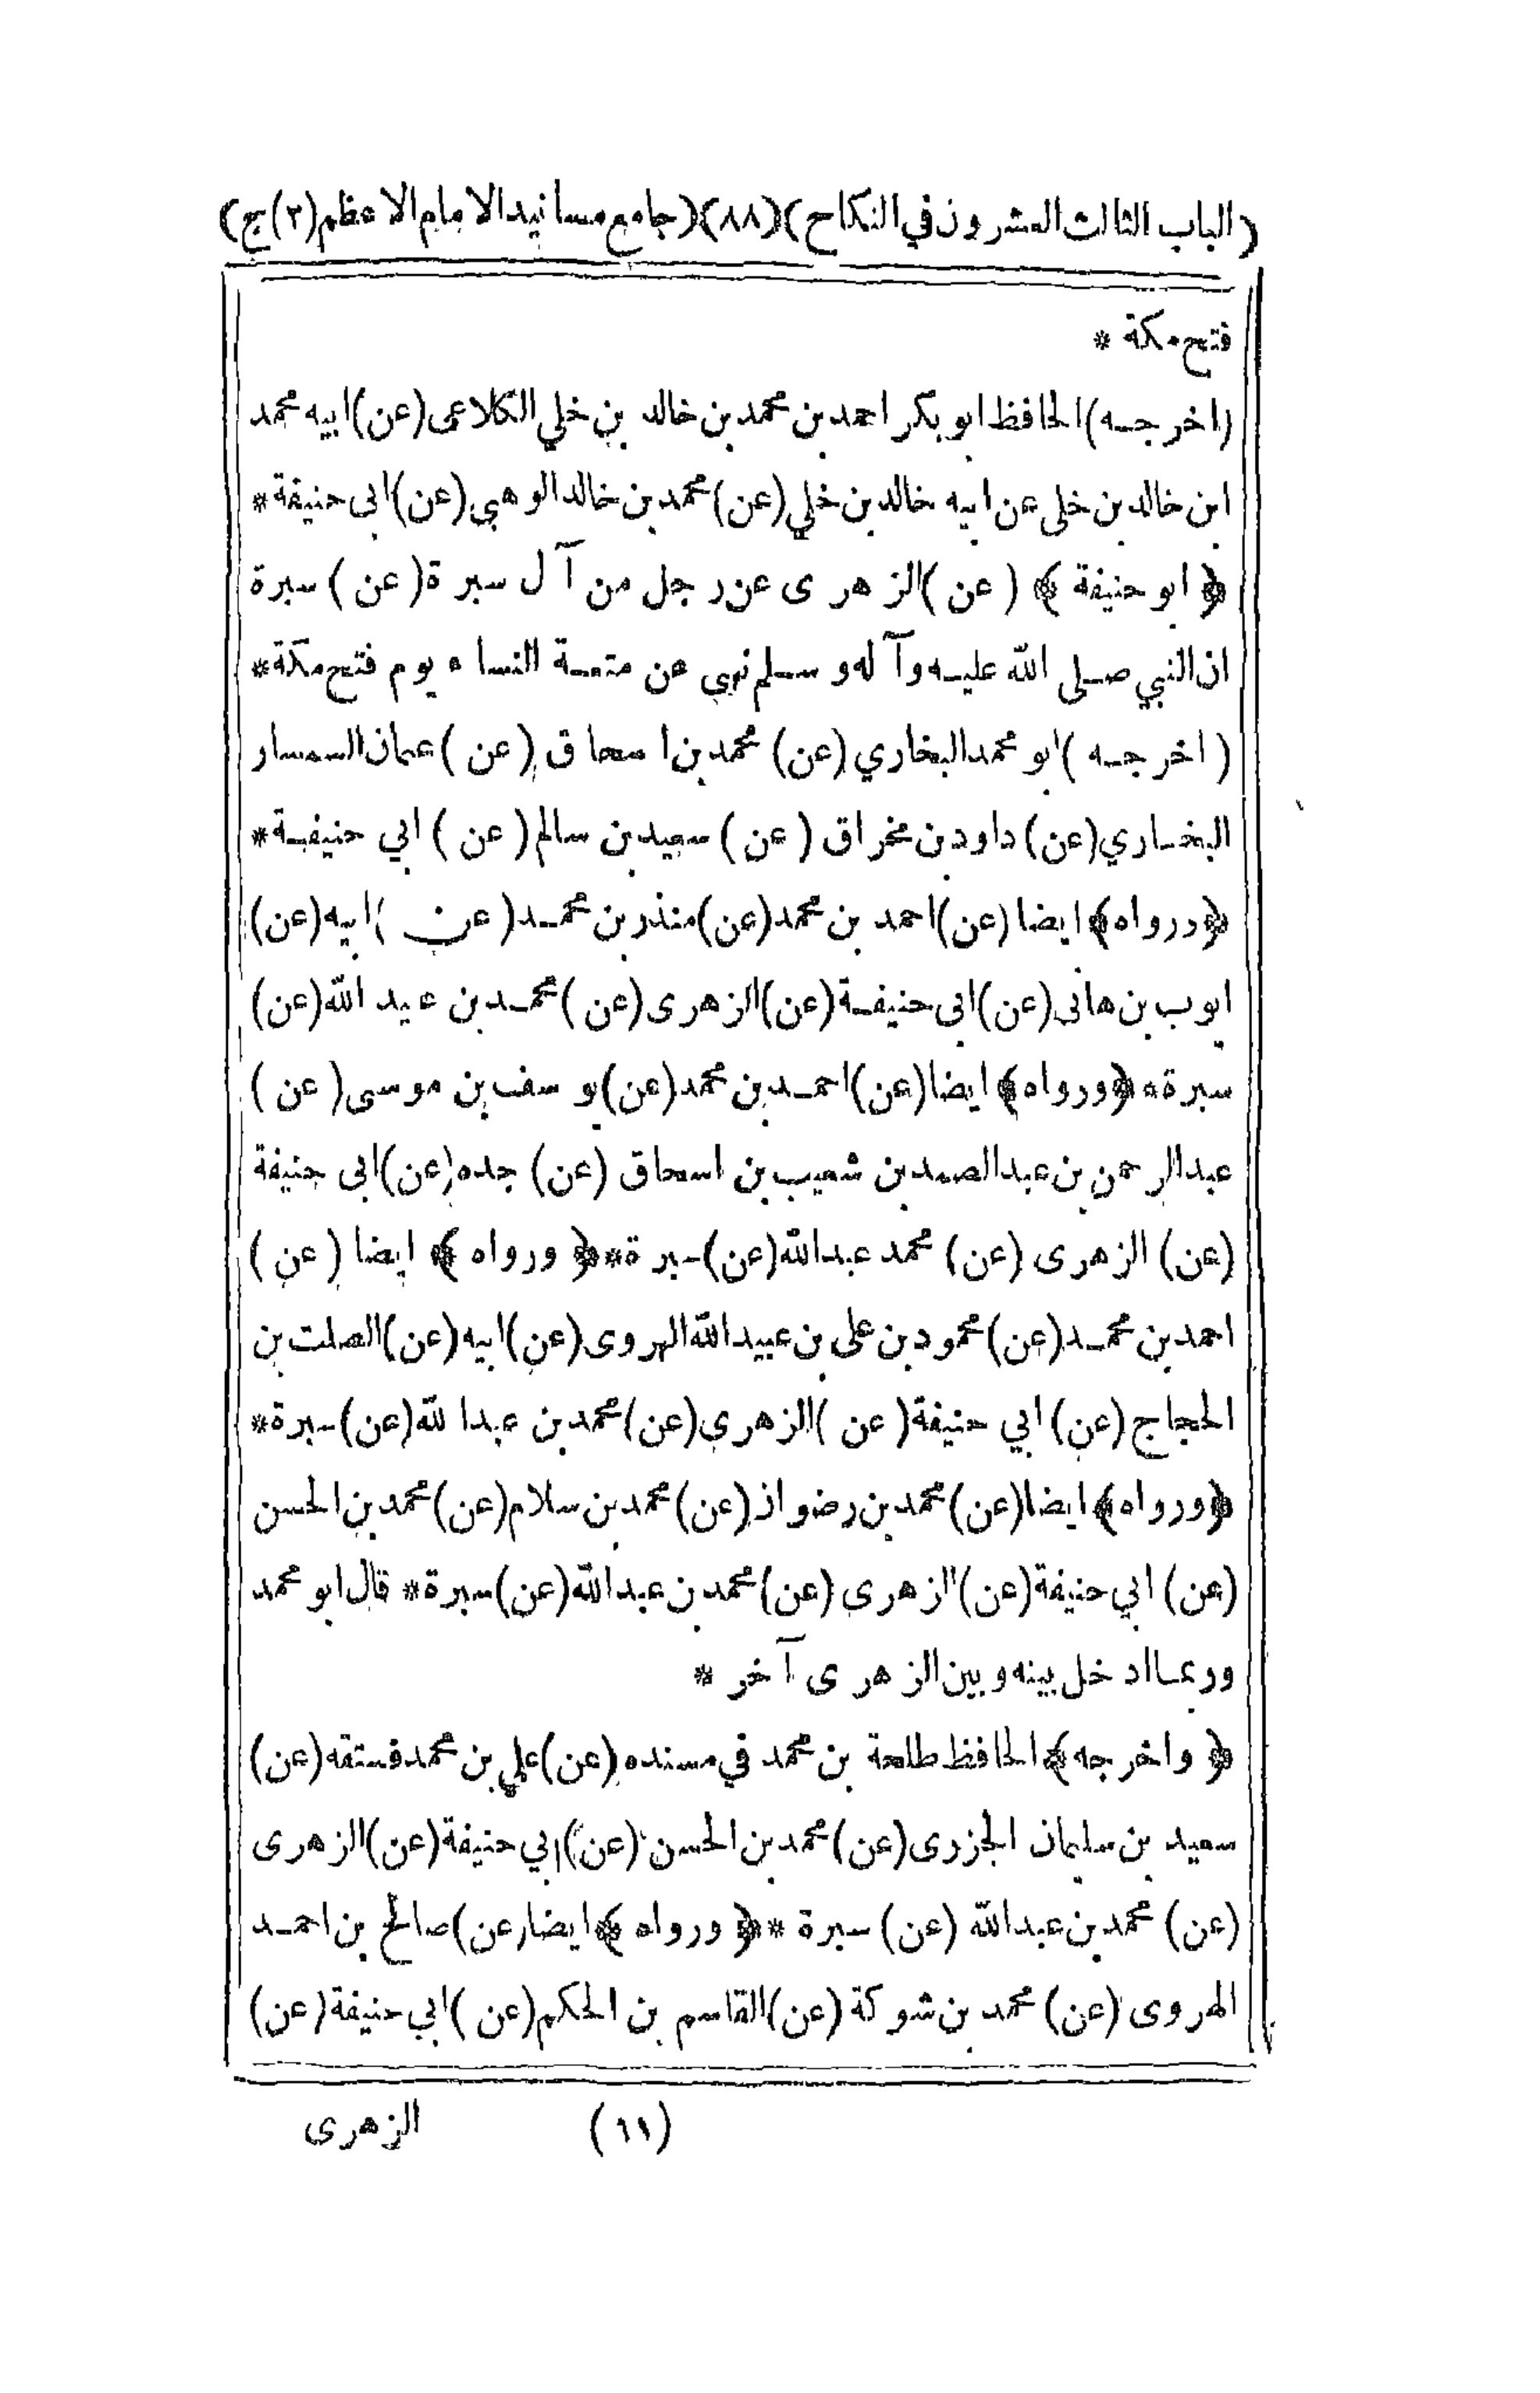 (الباب الثالث العشرون في النكاح) (٨٨) (جامع مسانيد الامام الاعظم (٢) ج)
فتح مكة *
(اخرجه) الحافظ ابو بكر احمد بن محمد بن خالد بن خلي الكلاعى (عن) ابيه محمد
ابن خالد بن خلى عن ابيه خالد بن خلي (عن) محمد بن خالد الوهبي (عن) ابى حنيفة *
﴿ ابو حنيفة ﴾ (عن) الزهرى عن رجل من آل سبرة (عن) سبرة
ان النبي صلى الله عليه وآله وسلم نهى عن متعة النساء يوم فتح مكة *
(اخرجه) ابو محمد البخاري (عن) محمد بن اسحاق (عن) عثمان السمسار
البخاري (عن) داود بن مخراق (عن) سعيد بن سالم (عن) ابي حنيفة *
﴿ورواه﴾ ايضا (عن) احمد بن محمد (عن) منذر بن محمد (عن) ابيه (عن)
ايوب بن هانى (عن) ابى حنيفة (عن) الزهرى (عن) محمد بن عبد الله (عن)
سبرة * ﴿ورواه﴾ ايضا (عن) احمد بن محمد (عن) يوسف بن موسى (عن)
عبد الرحمن بن عبد الصمد بن شعيب بن اسحاق (عن) جده (عن) ابى حنيفة
(عن) الزهرى (عن) محمد عبد الله (عن) سبرة * ﴿ ورواه ﴾ ايضا (عن)
احمد بن محمد (عن) محمود بن على بن عبيد الله الهروى (عن) ابيه (عن) الصلت بن
الحجاج (عن) ابي حنيفة (عن) الزهري (عن) محمد بن عبد الله (عن) سبرة *
﴿ورواه﴾ ايضا (عن) محمد بن رضوان (عن) محمد بن سلام (عن) محمد بن الحسن
(عن) ابي حنيفة (عن) الزهرى (عن) محمد بن عبد الله (عن) سبرة * قال ابو محمد
وربما ادخل بينه وبين الزهرى آخر *
﴿ واخرجه ﴾ الحافظ طلحة بن محمد في مسنده (عن) علي بن محمد فستقه (عن)
سعيد بن سليمان الجزرى (عن) محمد بن الحسن (عن) ابي حنيفة (عن) الزهرى
(عن) محمد بن عبد الله (عن) سبرة * ﴿ ورواه ﴾ ايضا (عن) صالح بن احمد
الهروى (عن) محمد بن شوكة (عن) القاسم بن الحكم (عن) ابي حنيفة (عن)
(١١) الزهرى